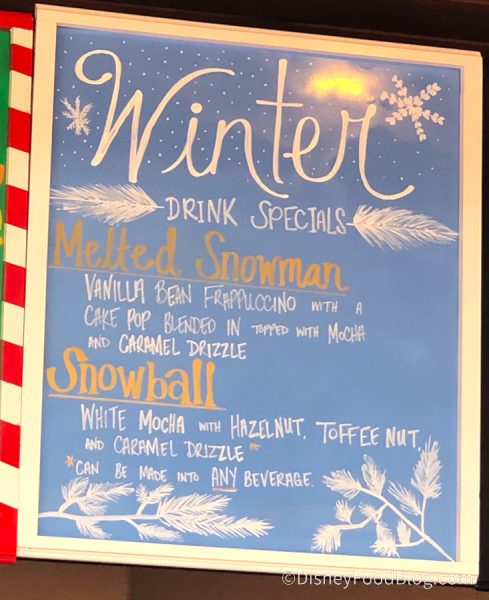 Winter
DRINK SPECIALS
Melted Snowman
VANILLA BEAN FRAPPUCCINO WITH A
CAKE POP BLENDED IN TOPPED WITH MOCHA
AND CARAMEL DRIZZLE
Snowball
WHITE MOCHA WITH HAZELNUT, TOFFEE NUT,
AND CARAMEL DRIZZLE *
*CAN BE MADE INTO ANY BEVERAGE.
©DisneyFoodBlog.com